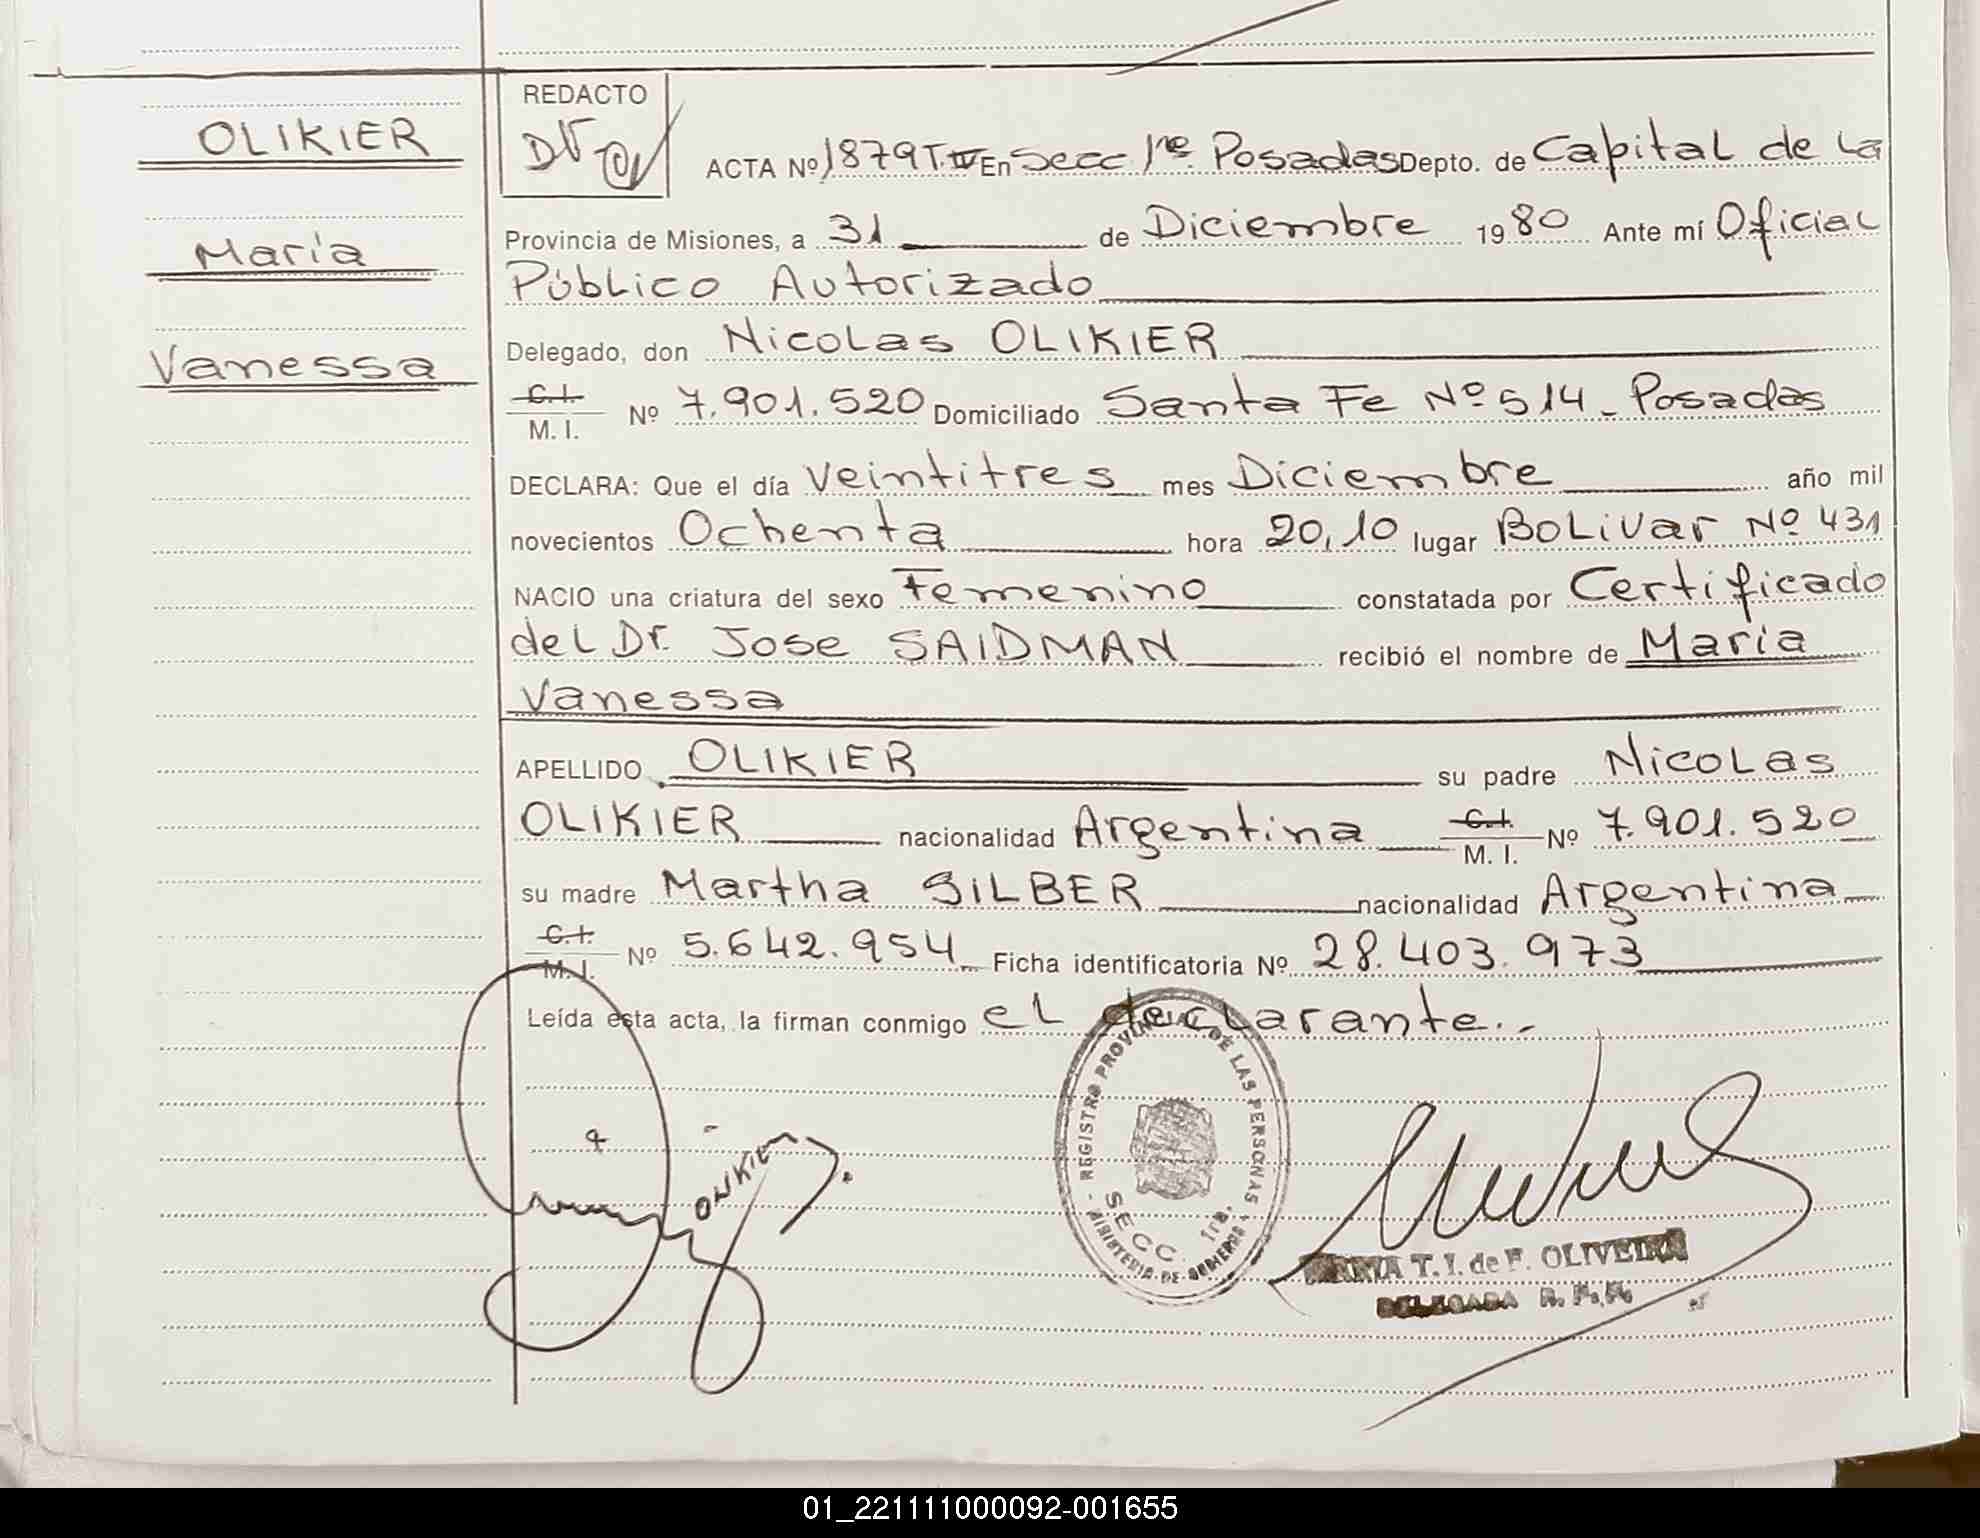 OLIKIER
María
Vanessa
REDACTO
ACTA Nº 1879 T IV En Secc 1ra. Posadas Depto. de Capital de la
Provincia de Misiones, a 31 de Diciembre 1980 Ante mí Oficial
Público Autorizado
Delegado, don Nicolas OLIKIER
C.I.
M. I. Nº 7.901.520 Domiciliado Santa Fe Nº 514 - Posadas
DECLARA: Que el día Veintitres mes Diciembre año mil
novecientos Ochenta hora 20,10 lugar Bolivar Nº 431
NACIO una criatura del sexo Femenino constatada por Certificado
del Dr. Jose SAIDMAN recibió el nombre de María
Vanessa
APELLIDO OLIKIER su padre Nicolas
OLIKIER nacionalidad Argentina C.I. M. I. Nº 7.901.520
su madre Martha SILBER nacionalidad Argentina
C.I. M. I. Nº 5.642.954 Ficha identificatoria Nº 28.403.973
Leída esta acta, la firman conmigo el declarante.-
REGISTRO PROVINCIAL DE LAS PERSONAS
SECC. 1ra.
MINISTERIO DE GOBIERNO
OLIKIER
T. I. de F. OLIVEIRA
DELEGADA R. P. P.
01_221111000092-001655